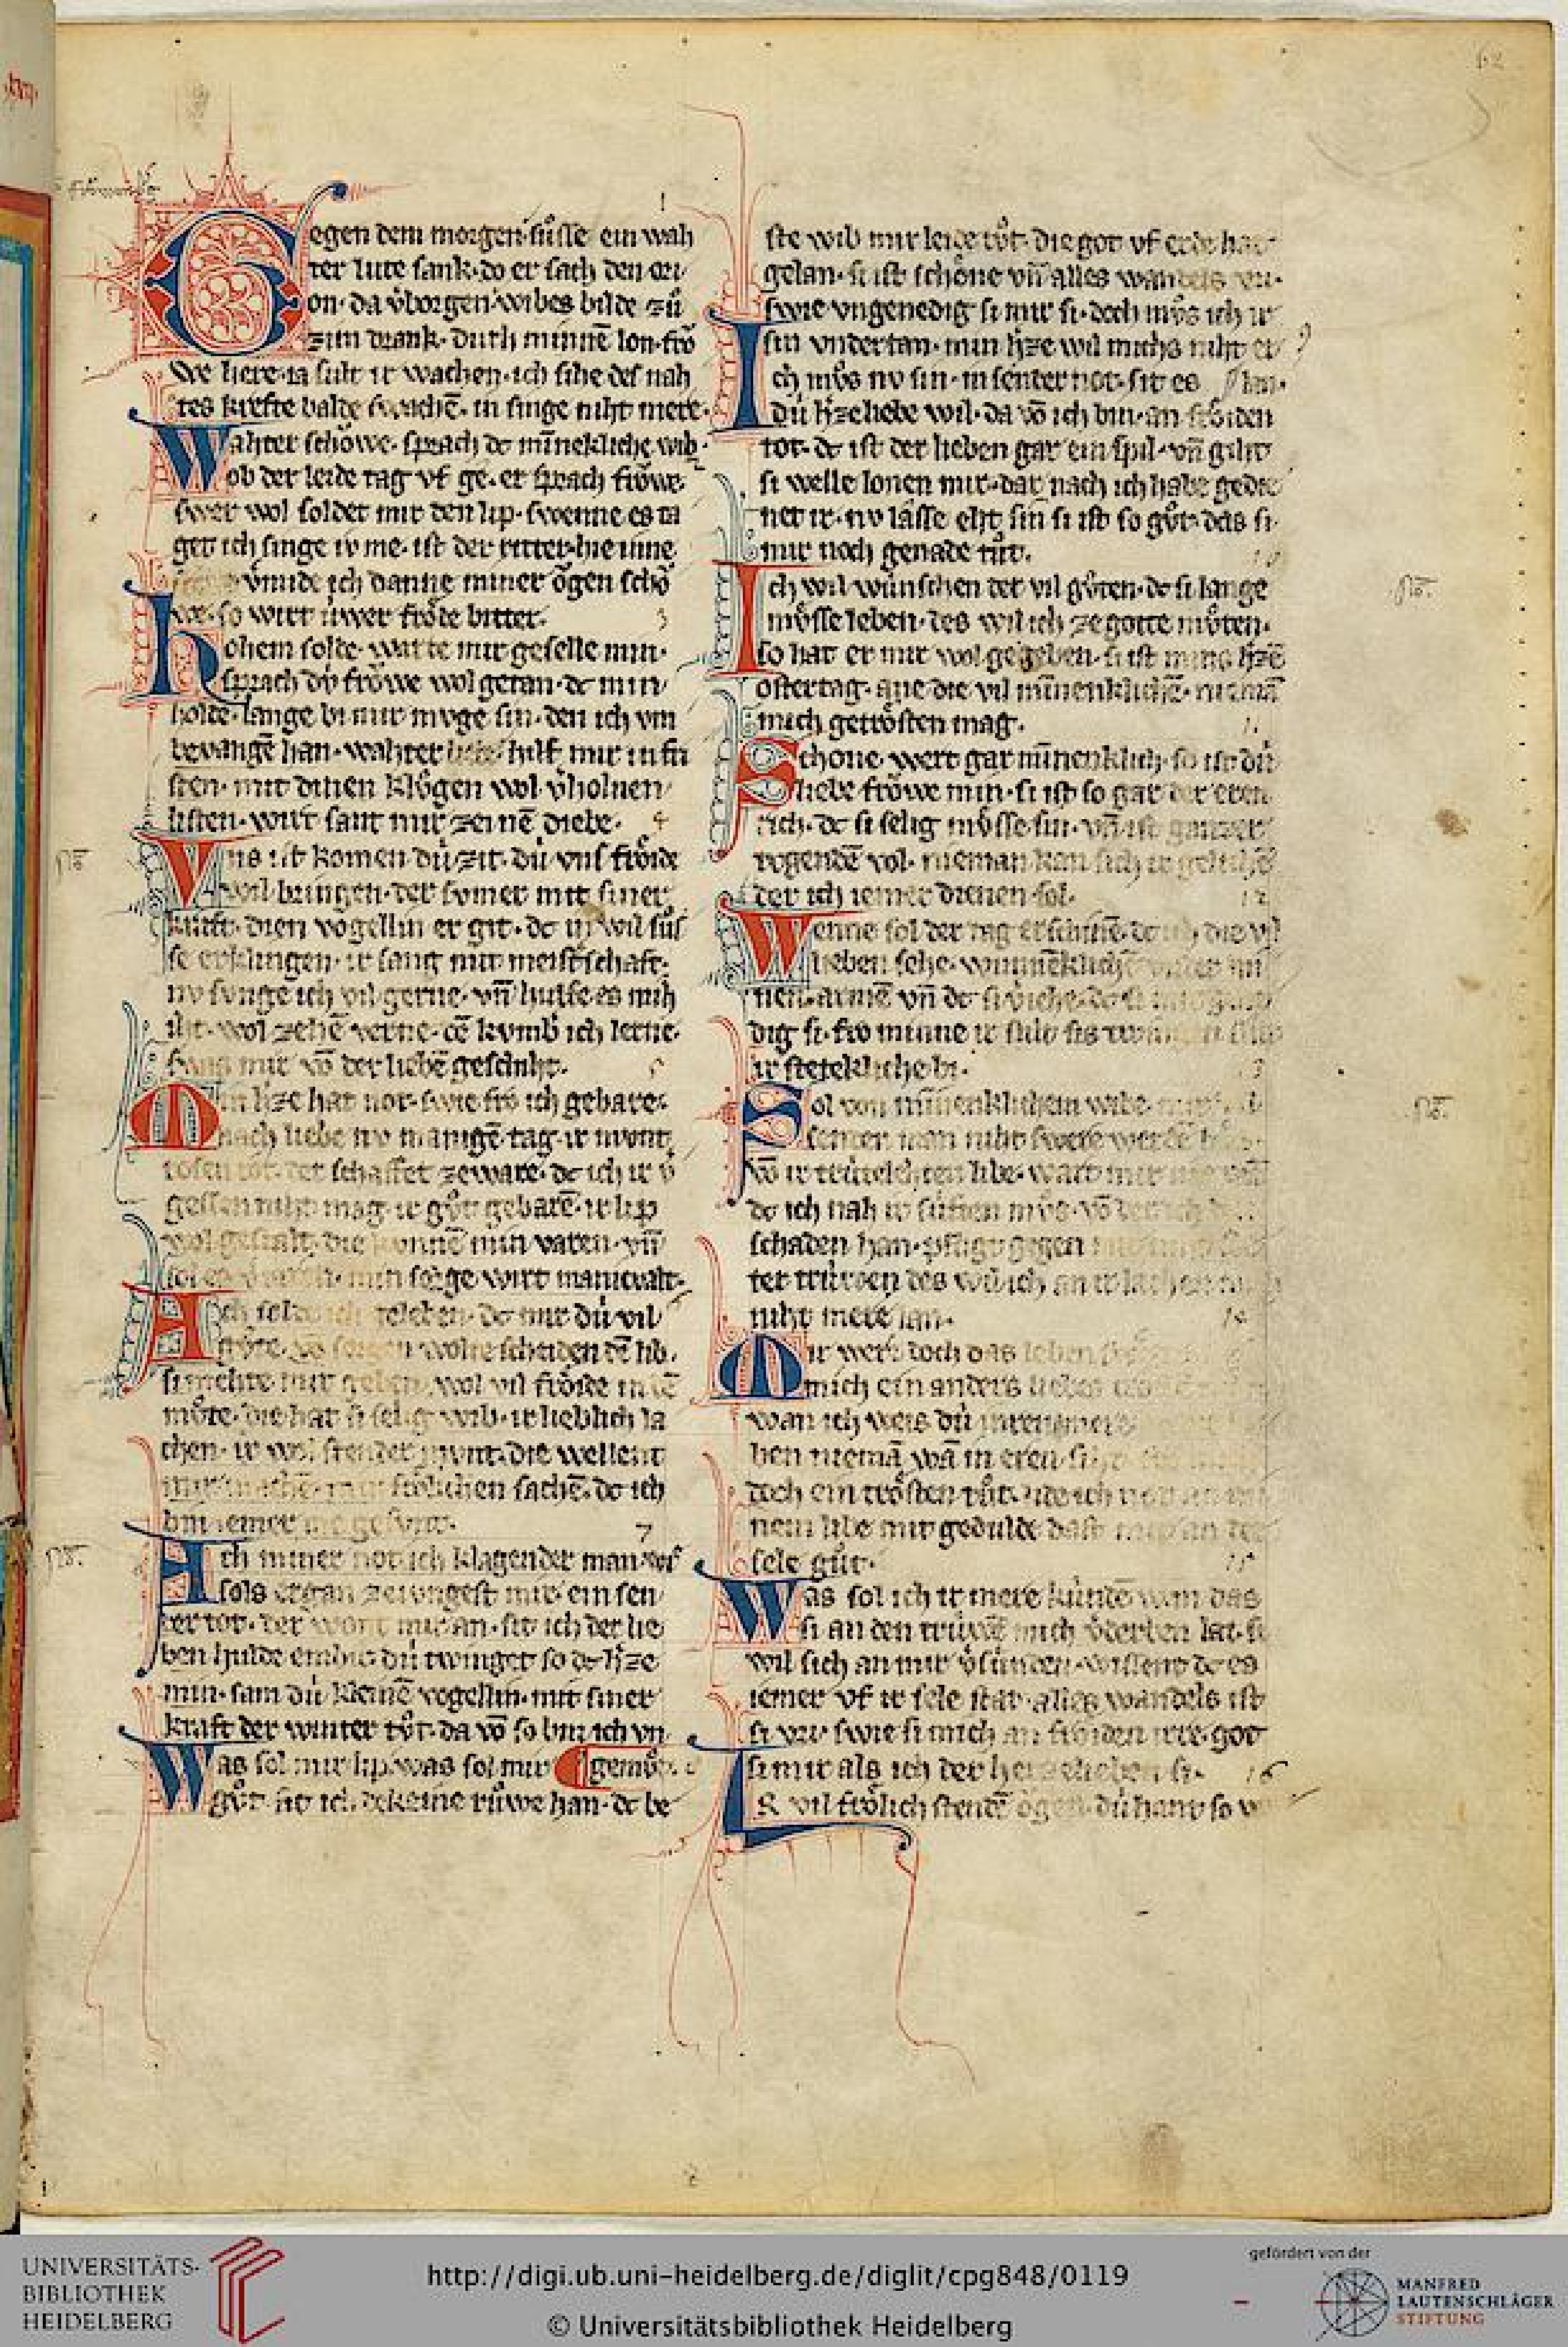 62
Gegen dem morgen suͤsse ein wah
ter lute sank do er sach den ori
on da v̾borgen wibes bilde zuͦ
zim drank durh minnē lon fro
we here ia sult ir wachen ich sihe des nah
tes krefte balde swachē in singe niht mere
Wahter schoͮwe sprach dc mīnekliche wib
ob der leide tag vf ge er sprach froͮwe
swer wol soldet mir den lip swenne es ta
get ich singe iv me ist der ritter hie inne
v̾mide ich danne miner oͮgen schoͮ
we so wirt úwer froͤde bitter
3
Hohem solde warte mir geselle min
sprach dú froͮwe wol getan dc min
holde lange bi mir muge sin den ich vm
bevangē han wahter hilf mir in fri
sten mit dinen kluͦgen wol v̾holnen
listen wirt samt mir zeinē diebe
4
Vns ist komen dú zit dú vns froͤide
wil bringen der sumer mit siner
kraft dien vogellin er git dc in wil suͤs
se erklingen ir sang mit meist̾schaft
nv sunge ich vil gerne vn̄ hulfe es mih
iht wol zehē verne ce kumb̾ ich lerne
sang mir vō der liebē geschiht
Min h̾ze hat not swie fro ich gebare
nach liebe nv manigē tag ir munt
rosen rot der schaffet zeware dc ich ir v̾
gessen niht mag ir guͦt gebarē ir lip
wol gestalt die kunnē min varen vn̄
min sorge wirt manicvalt
Ach solde ich geleben dc mir dú vil
guͦte vō sorgen wolte scheiden dē lib
si mehte mir geben wol vil froͤide in dē
muͦte die hat si selig wib ir lieblich la
chen ir wol stender munt die wellent
mir machē froͤlichen sachē dc ich
bin iemer me gesunt
7
Ach miner not ich klagender man wes
sols ergan ze iungest mir ein sen
der tot der wont mir an sit ich der lie
ben hulde enbir dú twinget so dc h̾ze
min sam dú kleinē vogellin mit siner
kraft der winter tuͦt da vō so bin ich vn
Was sol mir lip was sol mir gemuͦt
guͦt sit ich dekeine ruͦwe han dc be
ste wib mir leide tuͦt die got vf erde hat
gelan si ist schoͤne vn̄ alles wandels vri
swie vngenedig si mir si doch muͦs ich ir
sin vndertan min h̾ze wil michs niht er
9
Ich muͦs nv sin in sender not sit es lan
dú h̾zeliebe wil da vō ich bin an froͤiden
tot dc ist der lieben gar ein spil vn̄ giht
si welle lonen mir dar nach ich habe gedie
net ir nv lasse eht sin si ist so guͦt das si
mir noch genade tuͦt
10
Ich wil wúnschen der vil guͦten dc si lange
muͤsse leben des wil ich ze gotte muͦten
so hat er mir wol gegeben si ist mins h̾zē
ostertag ane die vil minenklichē niemā
mich getroͤsten mag
Schone wert gar minenklich so ist dú
liebe froͮwe min si ist so gar der eren
rich dc si selig muͤsse sin vn̄ ist ganzer
tugendē vol nieman kan sich ir gelichē
der ich iemer dienen sol
12
Wenne sol der tag erschinē dc ich die vil
lieben sehe winnēklichē vnder mi
nen armē vn̄ dc si v̾iehe dc si
dig si fro minne ir sult
ir stetekliche bi
Sol von minenklichem wibe
sender man niht swere werdē
vō ir trútelehten libe wart mir
dc ich nah ir súften muͦs vō der ich
schaden han pfligt gegen
ter trúwen des wil ich an ir lachen
niht mere lan
14
Mir were doch das leben
mich ein anders liebes
wan ich weis dú
ben niemā wā in eren
doch ein troͤsten tuͦt
nem libe mir gedulde dast
sele guͦt
15
Was sol ich ir mere kúndē wan das
si an den trúwē mich v̾derben lat si
wil sich an mir v̾súnden wissent dc es
iemer vf ir sele stat alles wandels ist
si vri swie si mich an froͤiden irre got
si mir als ich der herzelieben si
16
IR vil froͤlich stendē oͮgen dú hant so
UNIVERSITÄTS-
BIBLIOTHEK
HEIDELBERG
http://digi.ub.uni-heidelberg.de/diglit/cpg848/0119
© Universitätsbibliothek Heidelberg
gefördert von der
MANFRED
LAUTENSCHLÄGER
STIFTUNG